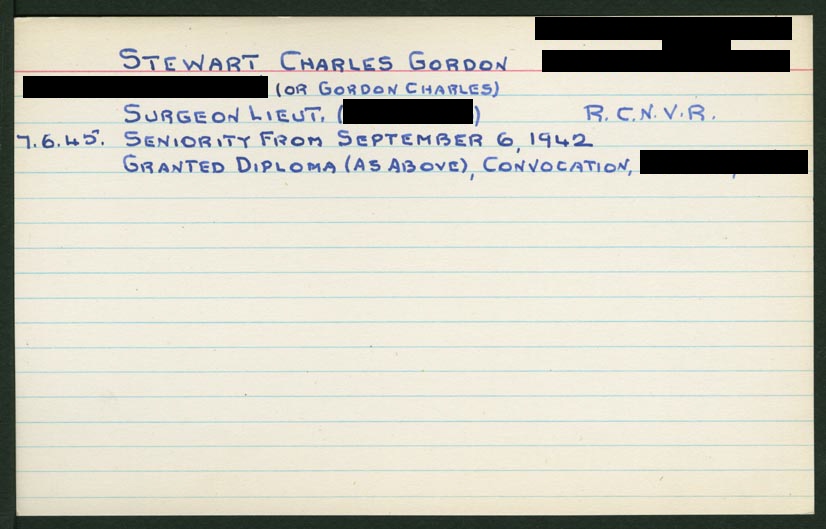 STEWART CHARLES GORDON
(OR GORDON CHARLES)
SURGEON LIEUT. ( ) R.C.N.V.R.
7.6.45. SENIORITY FROM SEPTEMBER 6, 1942
GRANTED DIPLOMA (AS ABOVE), CONVOCATION,